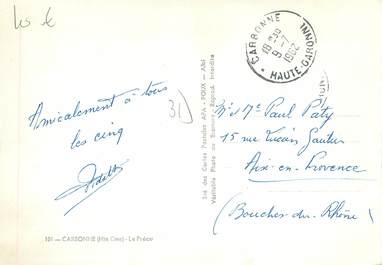 10 €
CARBONNE
18H30
9-7
1962
HAUTE-GARONNE
31
Amicalement à tous
les cinq
Mr Me Paul Paty
15 rue Lucien Gautier
Aix-en-Provence
(Bouches-du-Rhône)
Sté des Cartes Postales APA - POUX - Albi
Véritable Photo au Bromure - Reprod. Interdite
101 — CARBONNE (Hte Gne) - Le Préau